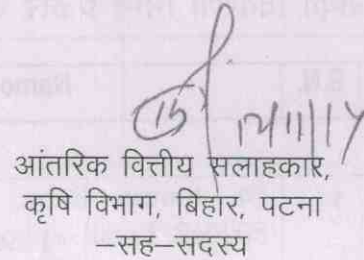 12/11/14
आंतरिक वित्तीय सलाहकार,
कृषि विभाग, बिहार, पटना
–सह–सदस्य